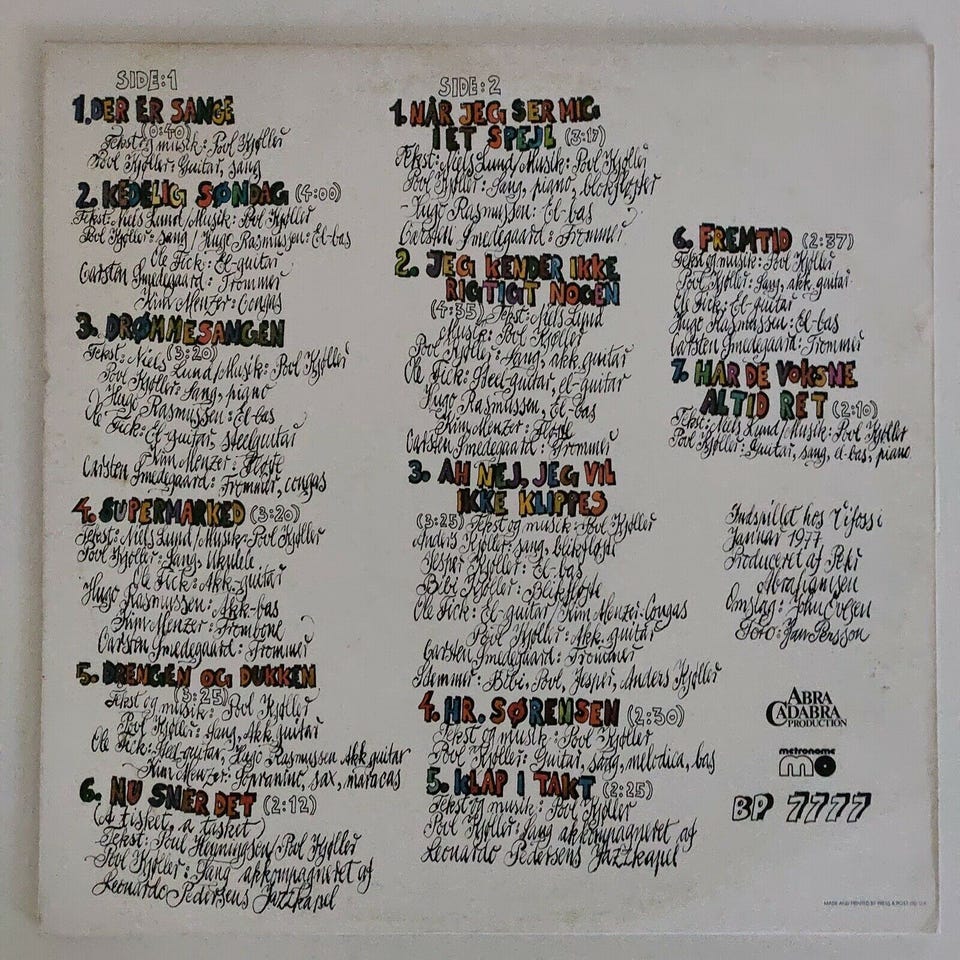 SIDE:1
1. DER ER SANGE
(0:40)
Tekst og musik: Pool Kjøller
Pool Kjøller: Guitar, sang
2. KEDELIG SØNDAG (4:00)
Tekst: Niels Lund/Musik: Pool Kjøller
Pool Kjøller: sang/Hugo Rasmussen: El-bas
Ole Fick: El-guitar
Carsten Smedegaard: Trommer
Kim Menzer: Congas
3. DRØMMESANGEN
(3:20)
Tekst: Niels Lund/Musik: Pool Kjøller
Pool Kjøller: sang, piano
Hugo Rasmussen: El-bas
Ole Fick: El-guitar, steelguitar
Kim Menzer: Fløjte
Carsten Smedegaard: Trommer, congas
4. SUPERMARKED (3:20)
Tekst: Niels Lund/Musik: Pool Kjøller
Pool Kjøller: Sang, Ukulele
Ole Fick: Akk-guitar
Hugo Rasmussen: Akk-bas
Kim Menzer: Trombone
Carsten Smedegaard: Trommer
5. DRENGEN OG DUKKEN
(3:25)
Tekst og musik: Pool Kjøller
Pool Kjøller: Sang, Akk. guitar
Ole Fick: Steel-guitar, Hugo Rasmussen Akk guitar
Kim Menzer: Sopranino, sax, maracas
6. NU SNER DET (2:12)
(A tisket, a tasket)
Tekst: Poul Henningsen/Pool Kjøller
Pool Kjøller: Sang akkompagneret af
Leonardo Pedersens Jazzkapel
SIDE:2
1. NÅR JEG SER MIG
I ET SPEJL (3:17)
Tekst: Niels Lund/Musik: Pool Kjøller
Pool Kjøller: Sang, piano, blokfløjter
Hugo Rasmussen: El-bas
Carsten Smedegaard: Trommer
2. JEG KENDER IKKE
RIGTIGT NOGEN
(4:35) Tekst: Niels Lund
Musik: Pool Kjøller
Pool Kjøller: Sang, akk. guitar
Ole Fick: Steel-guitar, el-guitar
Hugo Rasmussen, El-bas
Kim Menzer: Fløjte
Carsten Smedegaard: Trommer
3. ÅH NEJ, JEG VIL
IKKE KLIPPES
(3:25) Tekst og musik: Pool Kjøller
Anders Kjøller: sang, blokfløjte
Jesper Kjøller: El-bas
Bibi Kjøller: Blokfløjte
Ole Fick: El-guitar/Kim Menzer: Congas
Pool Kjøller: Akk. guitar
Carsten Smedegaard: Trommer
Stemmer: Bibi, Pool, Jesper, Anders Kjøller
4. HR. SØRENSEN (2:30)
Tekst og musik: Pool Kjøller
Pool Kjøller: Guitar, sang, melodica, bas
5. KLAP I TAKT (2:25)
Tekst og musik: Pool Kjøller
Pool Kjøller: Sang akkompagneret af
Leonardo Pedersens Jazzkapel
6. FREMTID (2:37)
Tekst og musik: Pool Kjøller
Pool Kjøller: Sang, akk. guitar
Ole Fick: El guitar
Hugo Rasmussen: El-bas
Carsten Smedegaard: Trommer
7. HAR DE VOKSNE
ALTID RET (2:10)
Tekst: Niels Lund/Musik: Pool Kjøller
Pool Kjøller: Guitar, sang, el-bas, piano
Indspillet hos
Januar 1977
Produceret af
Omslag: John
Foto: Jan Persson
ABRA
CADABRA
PRODUCTION
metronome
BP 7777
MADE AND PRINTED BY